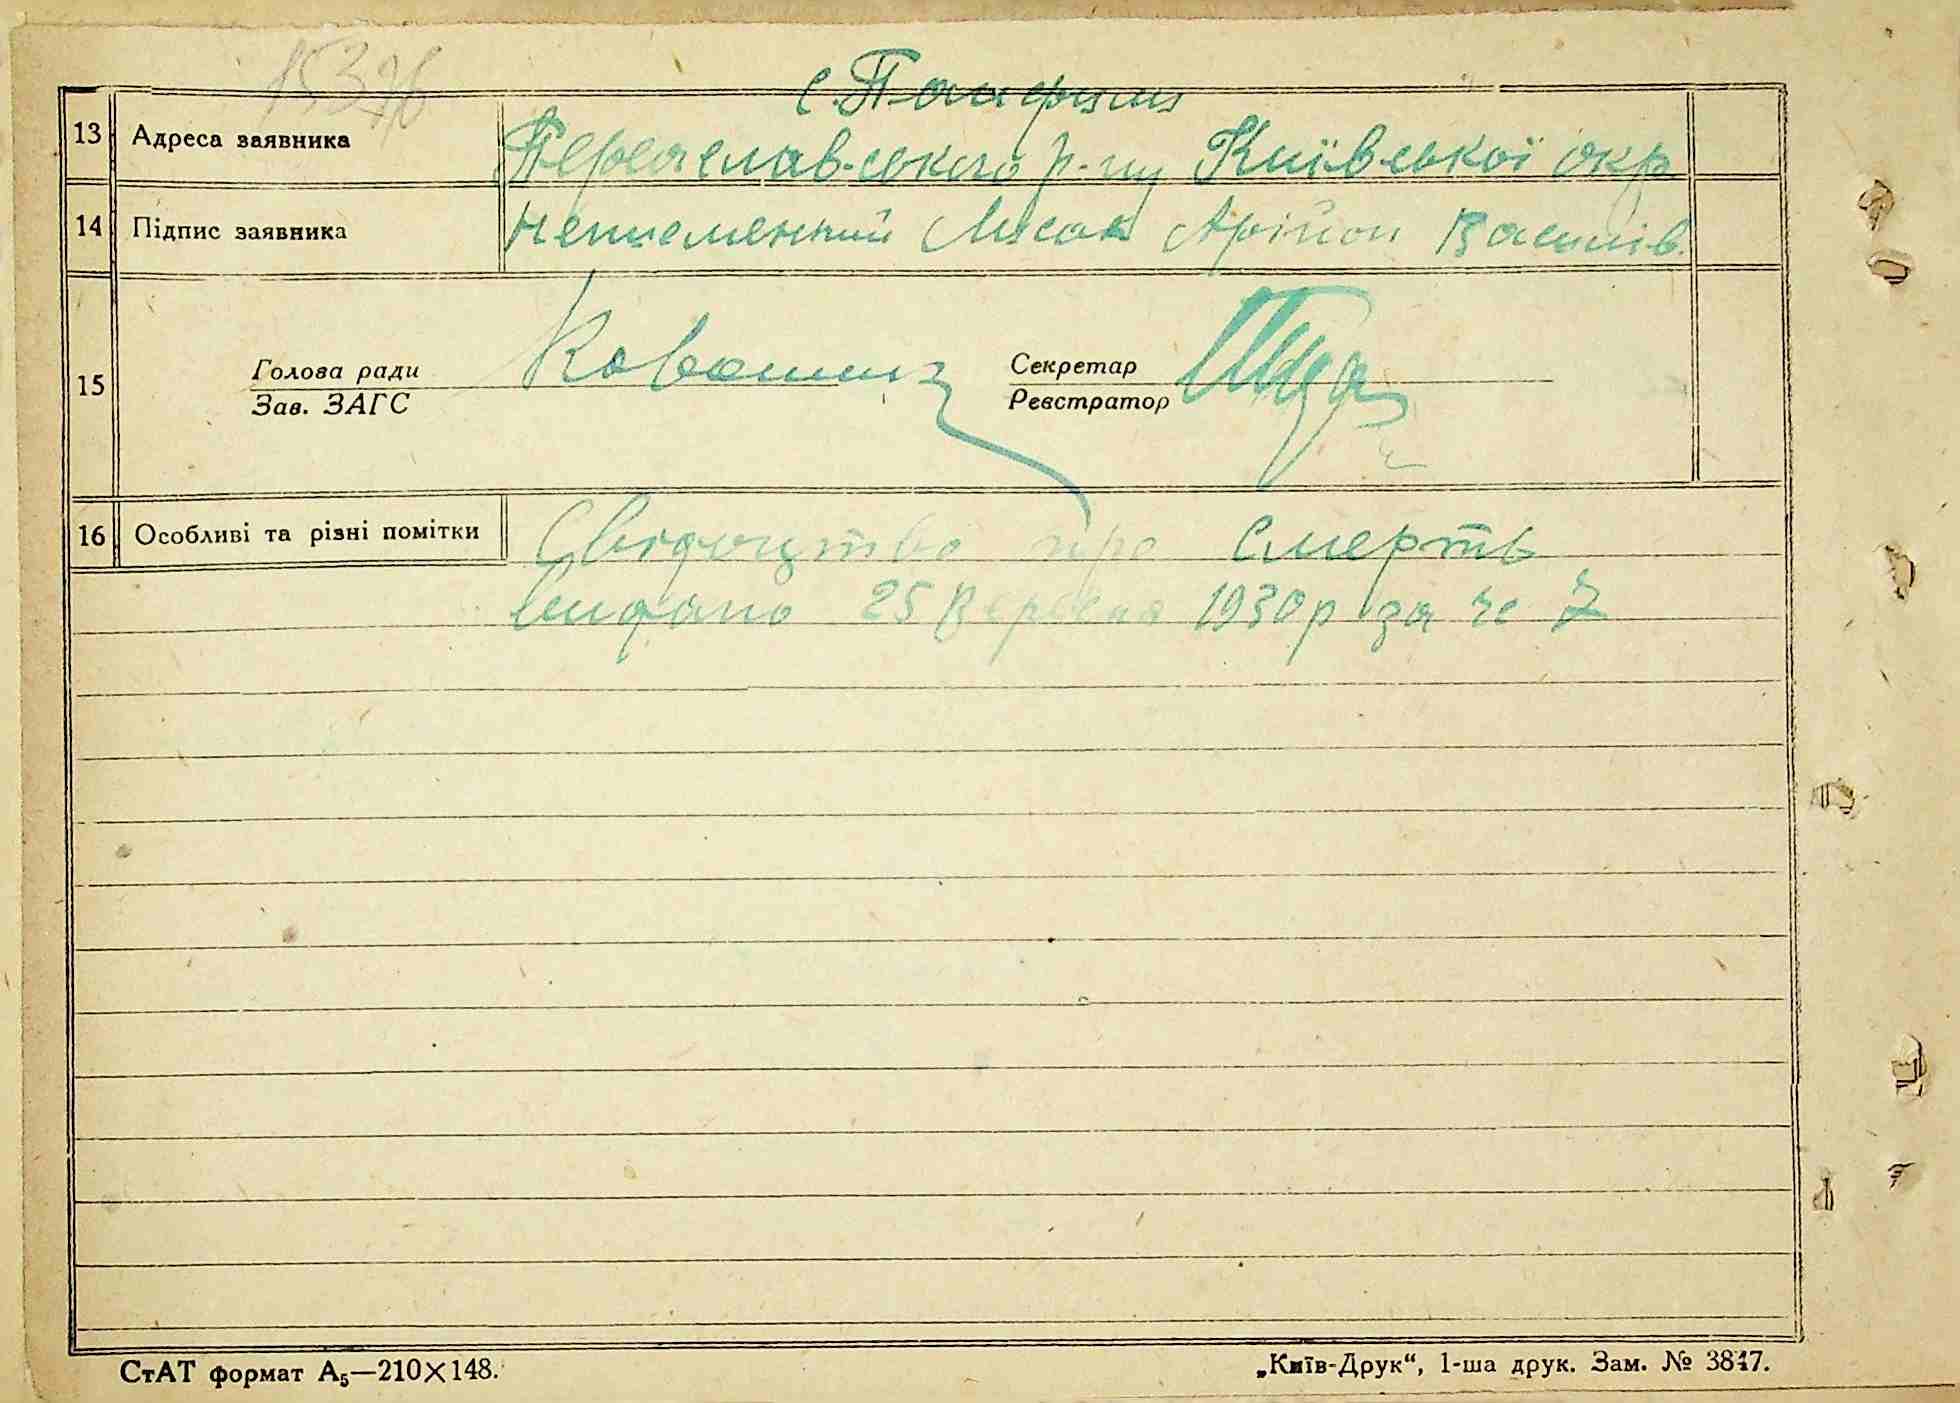 с. Панфили
13 Адреса заявника Переяславського р-ну Київської окр
14 Підпис заявника Неписьменний Лисак Арійон Василів.
15 Голова ради Секретар
Зав. ЗАГС Реєстратор
16 Особливі та різні помітки Свідоцтво про смерть
видано 25 вересня 1930 р за че 7
СтАТ формат А₅—210×148.
„Київ-Друк“, 1-ша друк. Зам. № 3847.